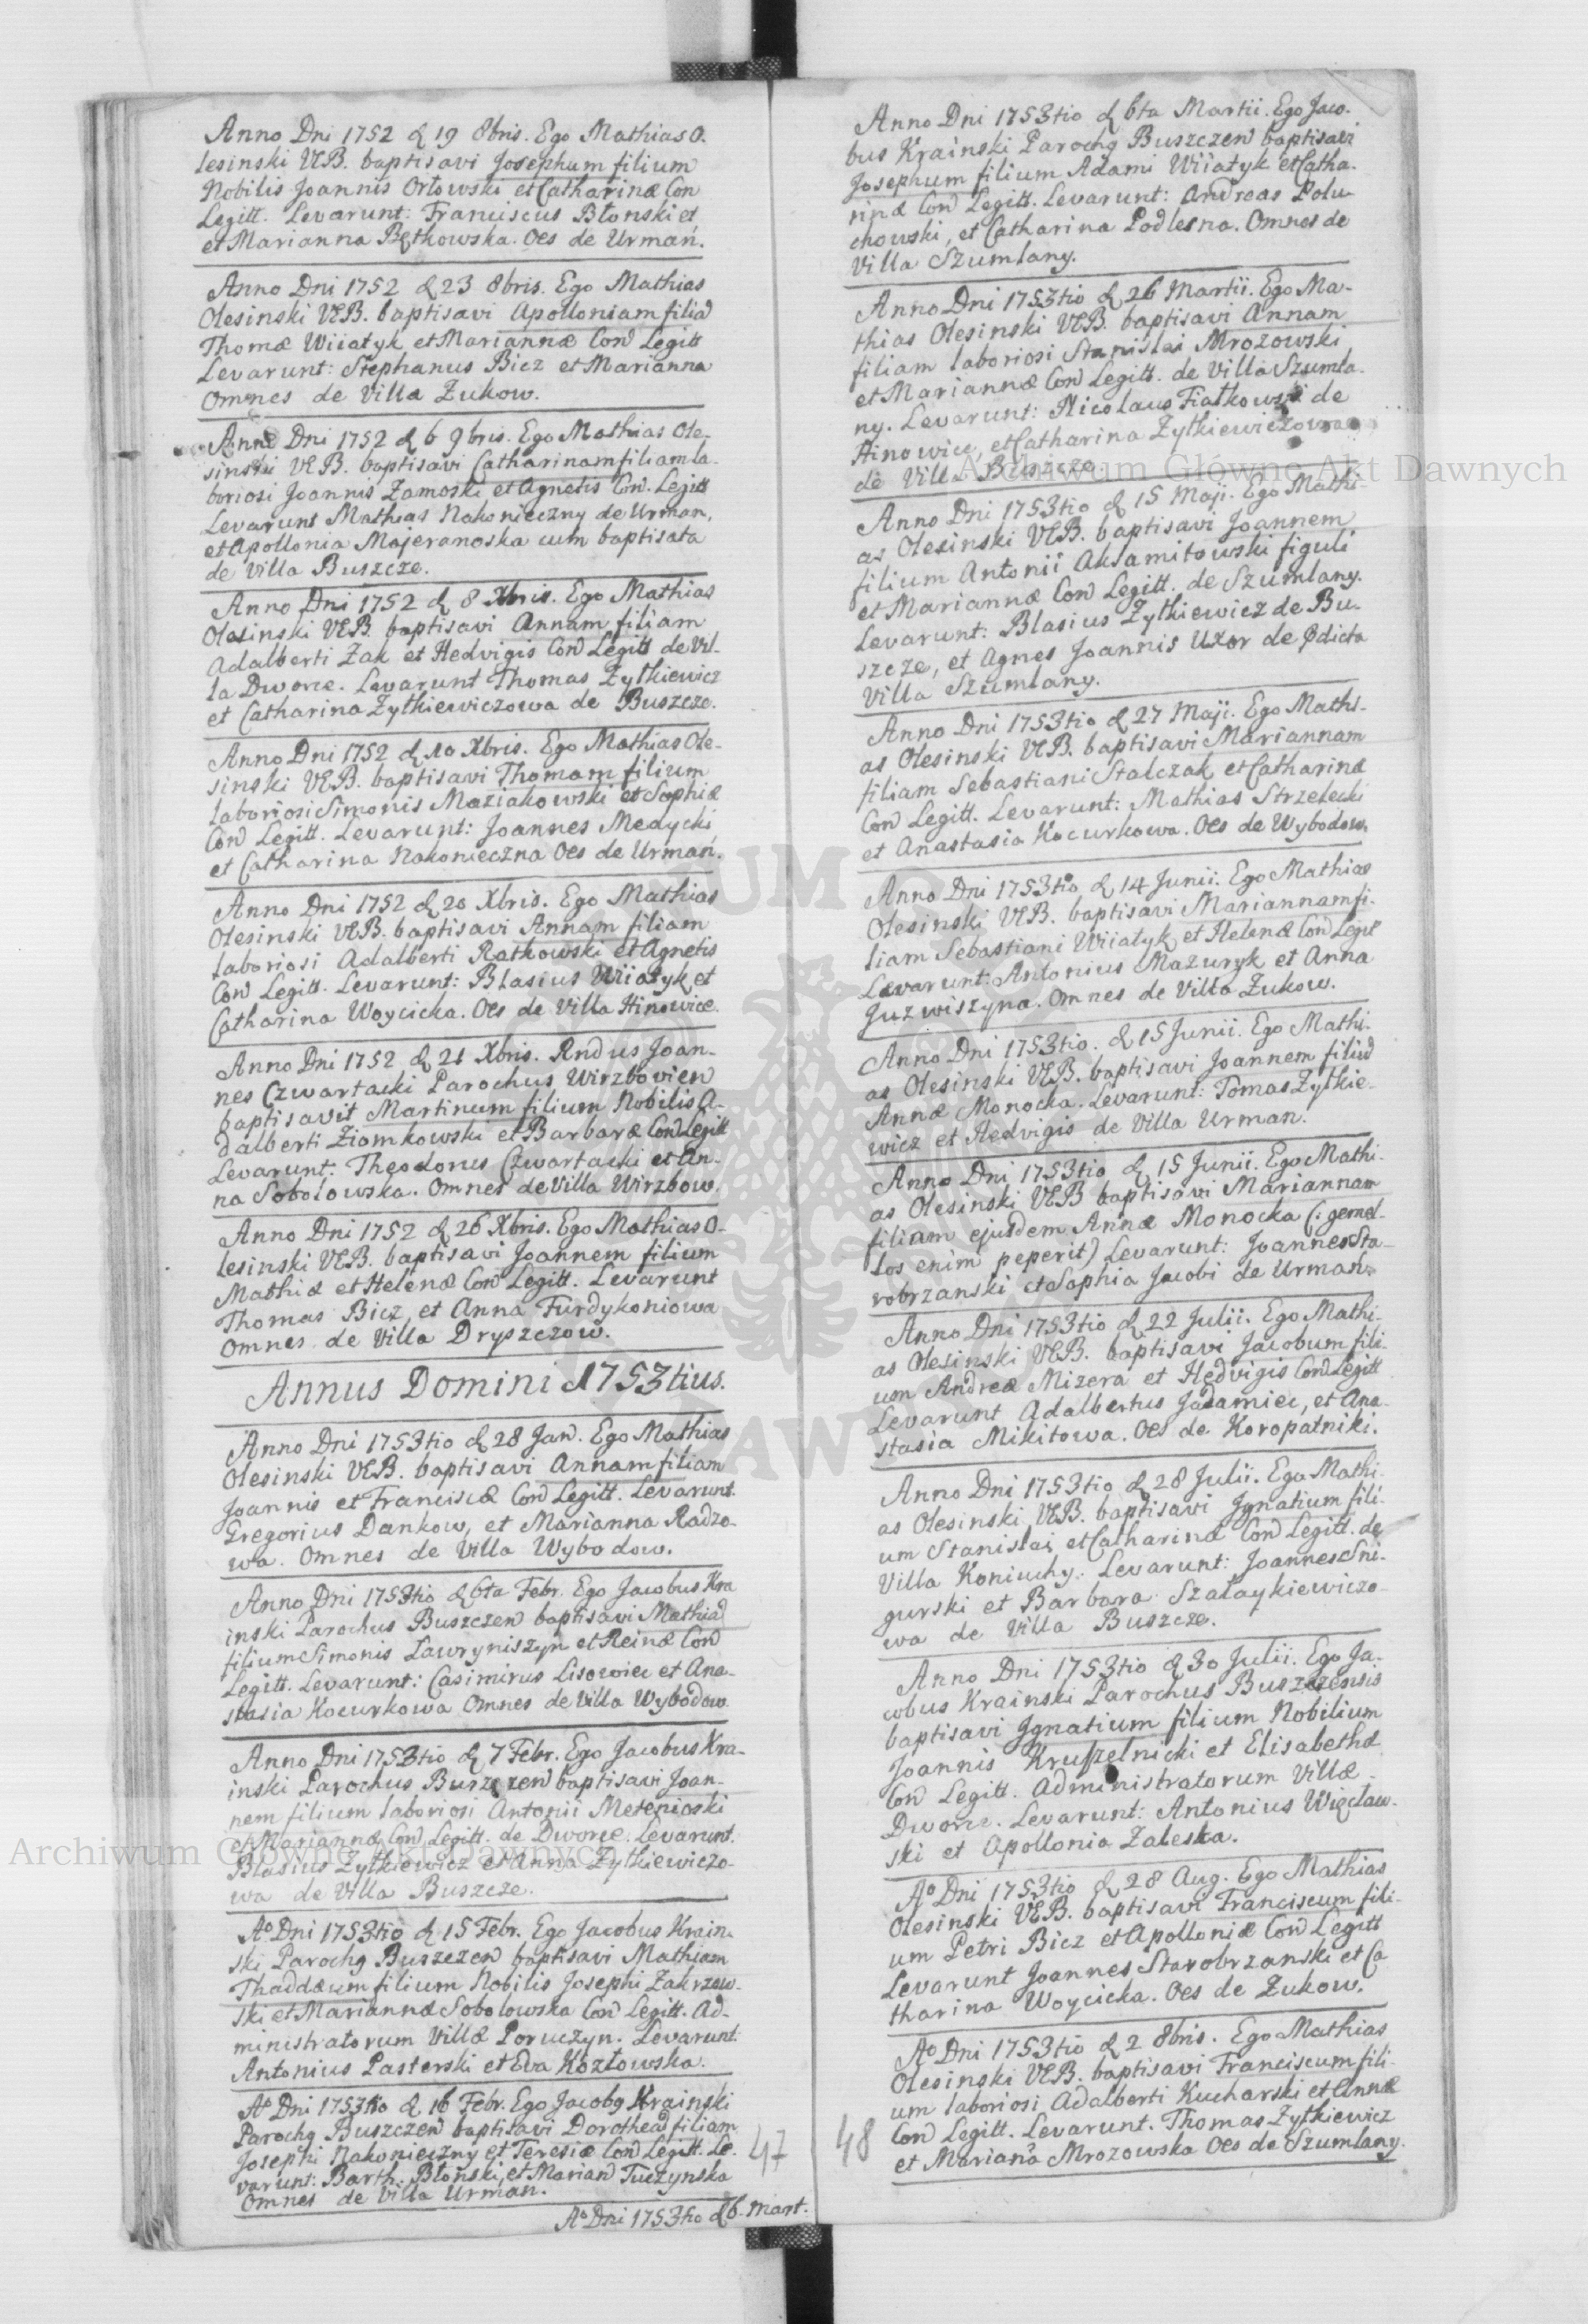 Anno Dni 1752 d 19 8bris. Ego Mathias O.
lesinski VEB. baptisavi Josephum filium
Nobilis Joannis Orłowski et Catharinæ Con
Legitt. Levarunt: Franciscus Błonski et
et Marianna Bętkowska. Oes de Urmań.
Anno Dni 1752 d 23 8bris. Ego Mathias
Olesinski VEB. baptisavi Apolloniam filia
Thomæ Wiiatyk et Mariannæ Con Legitt
Levarunt: Stephanus Bicz et Marianna
Omnes de Villa Zukow.
Anno Dni 1752 d 6 9bris. Ego Mathias Ole-
sinski VEB. baptisavi Catharinam filiam la-
boriosi Joannis Zamoski et Agnetis Con. Legitt
Levarunt Mathias Nakonieczny de Urman,
et Apollonia Majeranoska cum baptisata
de Villa Buszcze.
Anno Dni 1752 d 8 Xbris. Ego Mathias
Olesinski VEB. baptisavi Annam filiam
Adalberti Zak et Hedvigis Con Legitt de Vil-
la Dworce. Levarunt Thomas Zytkiewicz
et Catharina Zytkiewiczowa de Buszcze.
Anno Dni 1752 d 10 Xbris. Ego Mathias Ole-
sinski VEB. baptisavi Thomam filium
laboriosi Simonis Maziakowski et Sophiæ
Con Legitt. Levarunt: Joannes Medycki
et Catharina Nakonieczna Oes de Urmań.
Anno Dni 1752 d 20 Xbris. Ego Mathias
Olesinski VEB. baptisavi Annam filiam
laboriosi Adalberti Ratkowski et Agnetis
Con Legitt. Levarunt: Blasius Wiiatyk et
Catharina Woycicka. Oes de Villa Hinowice.
Anno Dni 1752 d 21 Xbris. Rndus Joan-
nes Czwartacki Parochus Wirzbovien
baptisavit Martinum filium Nobilis A-
dalberti Ziomkowski et Barbaræ Con Legitt
Levarunt: Theodorus Czwartacki et An-
na Sobolowska. Omnes de Villa Wirzbow.
Anno Dni 1752 d 26 Xbris. Ego Mathias O-
lesinski VEB. baptisavi Joannem filium
Mathiæ et Helenæ Con Legitt. Levarunt
Thomas Bicz, et Anna Furdykoniowa
Omnes de Villa Dryszczow.
Annus Domini 1753tius.
Anno Dni 1753tio d 28 Jan. Ego Mathias
Olesinski VEB. baptisavi Annam filiam
Joannis et Franciscæ Con Legitt. Levarunt.
Gregorius Dankow, et Marianna Radzo-
wa. Omnes de Villa Wybodow.
Anno Dni 1753tio d 6ta Febr. Ego Jacobus Kra
inski Parochus Buszczen baptisavi Mathia
filium Simonis Lawryniszyn et Reinæ Con
Legitt. Levarunt: Casimirus Lisowiec et Ana-
stasia Kocurkowa Omnes de Villa Wybodow
Anno Dni 1753tio d 7 Febr. Ego Jacobus Kra-
inski Parochus Buszczen baptisavi Joan-
nem filium laboriosi Antonii Metenioski
et Mariannæ Con Legitt. de Dworce. Levarunt.
Blasius Zytkiewicz et Anna Zytkiewiczo-
wa de Villa Buszcze.
Ao Dni 1753tio d 15 Febr. Ego Jacobus Krain-
ski Parochg Buszczen baptisavi Mathiam
Thaddæum filium Nobilis Josephi Zakrzew-
ski et Mariannæ Sobolowska Con Legitt. Ad-
ministratorum Villæ Poruczyn. Levarunt
Antonius Pasterski et Eva Kozłowska.
Ao Dni 1753tio d 16 Febr. Ego Jacobg Krainski
Parochg Buszczen baptisavi Dorothea filiam
Josephi Nakonieczny et Teresiæ Con Legitt. Le-
varunt: Barth. Błonski, et Marian Tuczynska
Omnes de Villa Urman.
47
Ao Dni 1753tio d 6. Mart.
Anno Dni 1753tio d 6ta Martii. Ego Jaco.
bus Krainski Parochg Buszczen baptisavi
Josephum filium Adami Wiiatyk et Catha.
rinæ Con Legitt. Levarunt: Andreas Polu-
chowski, et Catharina Podlesna. Omnes de
Villa Szumlany.
Anno Dni 1753tio d 26 Martii. Ego Ma-
thias Olesinski VEB. baptisavi Annam
filiam laboriosi Stanislai Mrozowski
et Mariannæ Con Legitt. de Villa Szumla-
ny. Levarunt: Nicolaus Fiałkowski de
Hinowice, et Catharina Zytkiewiczowa
de Villa Buszcze.
Anno Dni 1753tio d 15 Maji. Ego Mathi-
as Olesinski VEB. baptisavi Joannem
filium Antonii Aksamitowski figuli
et Mariannæ Con Legitt. de Szumlany.
Levarunt: Blasius Zytkiewicz de Bu-
szcze, et Agnes Joannis Uxor de pdicta
Villa Szumlany.
Anno Dni 1753tio d 27 Maji. Ego Mathi-
as Olesinski VEB. baptisavi Mariannam
filiam Sebastiani Stalczak et Catharinæ
Con Legitt. Levarunt: Mathias Strzelecki
et Anastasia Kocurkowa. Oes de Wybodow.
Anno Dni 1753tio d 14 Junii. Ego Mathias
Olesinski VEB. baptisavi Mariannam fi-
liam Sebastiani Wiiatyk et Helenæ Con Legitt
Levarunt: Antonius Mazuryk et Anna
Juzwiszyna. Omnes de Villa Zukow.
Anno Dni 1753tio. d 15 Junii. Ego Mathi-
as Olesinski VEB. baptisavi Joannem filiu
Annæ Monocka. Levarunt: Tomas Zytkie-
wicz et Hedvigis de Villa Urman.
Anno Dni 1753tio d 15 Junii. Ego Mathi-
as Olesinski VEB baptisavi Mariannam
filiam ejusdem Annæ Monocka (: gemel-
los enim peperit) Levarunt: Joannes Sta-
robrzanski et Sophia Jacobi de Urman.
Anno Dni 1753tio d 22 Julii. Ego Mathi-
as Olesinski VEB. baptisavi Jacobum fili-
um Andreæ Mizera et Hedvigis Con Legitt
Levarunt Adalbertus Jadamiec, et Ana-
stasia Mikitowa. Oes de Koropatniki.
Anno Dni 1753tio d 28 Julii. Ego Mathi-
as Olesinski VEB. baptisavi Jgnatium fili-
um Stanislai et Catharinæ Con Legitt. de
Villa Koniuchy. Levarunt: Joannes Sni-
gurski et Barbara Szałaykiewiczo-
wa de Villa Buszcze.
Anno Dni 1753tio d 30 Julii. Ego Ja-
cobus Krainski Parochus Buszczensis
baptisavi Jgnatium filium Nobilium
Joannis Kruszelnicki et Elisabethæ
Con Legitt. Administratorum Villæ
Dworce. Levarunt: Antonius Więcław-
ski et Apollonia Zaleska.
Ao Dni 1753tio d 28 Aug. Ego Mathias
Olesinski VEB. baptisavi Franciscum fili-
um Petri Bicz et Apolloniæ Con Legitt
Levarunt Joannes Starobrzanski et Ca
tharina Woycicka. Oes de Zukow.
Ao Dni 1753tio d 2 8bris. Ego Mathias
Olesinski VEB. baptisavi Franciscum fili-
um laboriosi Adalberti Kucharski et Annæ
Con Legitt. Levarunt. Thomas Zytkiewicz
et Mariana Mrozowska Oes de Szumlany.
48
Archiwum Główne Akt Dawnych
Archiwum Główne Akt Dawnych